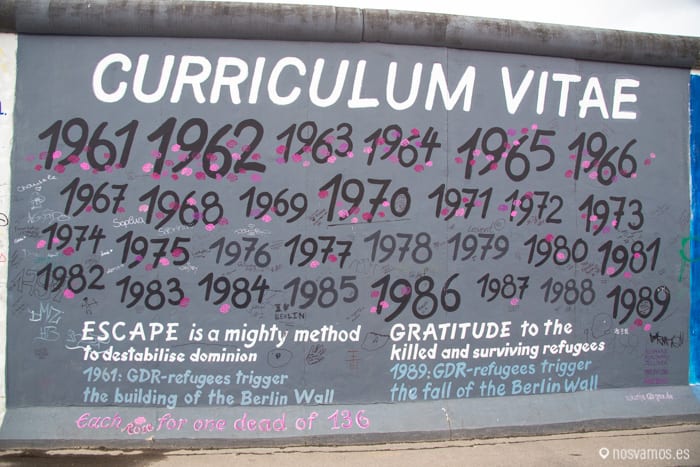 CURRICULUM VITAE
1961 1962 1963 1964 1965 1966
1967 1968 1969 1970 1971 1972 1973
1974 1975 1976 1977 1978 1979 1980 1981
1982 1983 1984 1985 1986 1987 1988 1989
ESCAPE is a mighty method
to destabilise dominion
1961: GDR-refugees trigger
the building of the Berlin Wall
GRATITUDE to the
killed and surviving refugees
1989: GDR-refugees trigger
the fall of the Berlin Wall
Each Rose for one dead of 136
nosvamos.es